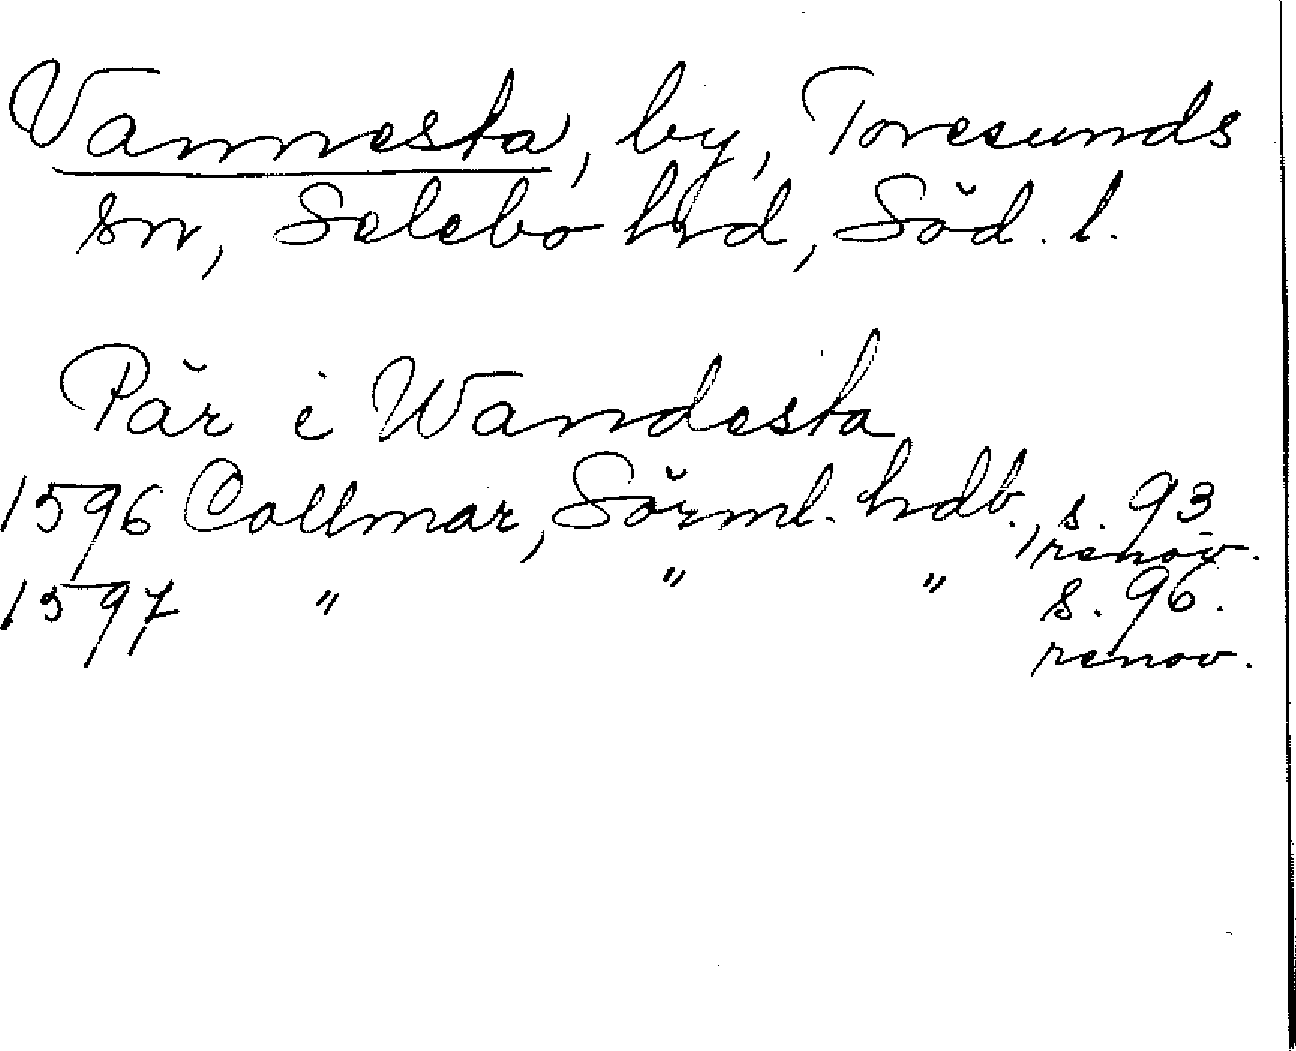 Vannesta, by, Toresunds
sn, Selebo hrd, Söd. l.
Pär i Wandesta
1596 Collmar, Sörml. hdb., s. 93
renov.
1597 " " " s. 96.
renov.